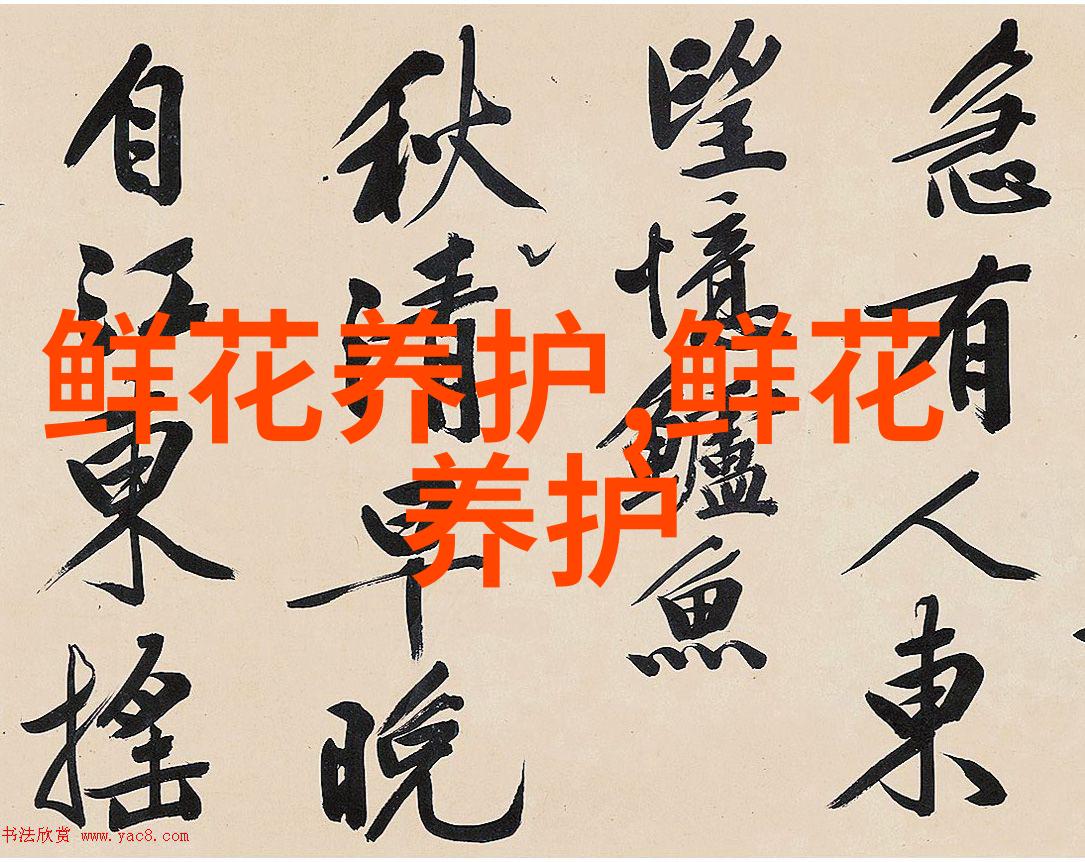 鲜花养护,鲜花
养护
急有人東
望憶鱸魚
秋清早晚
自江東搖
书法欣赏 www.yac8.com